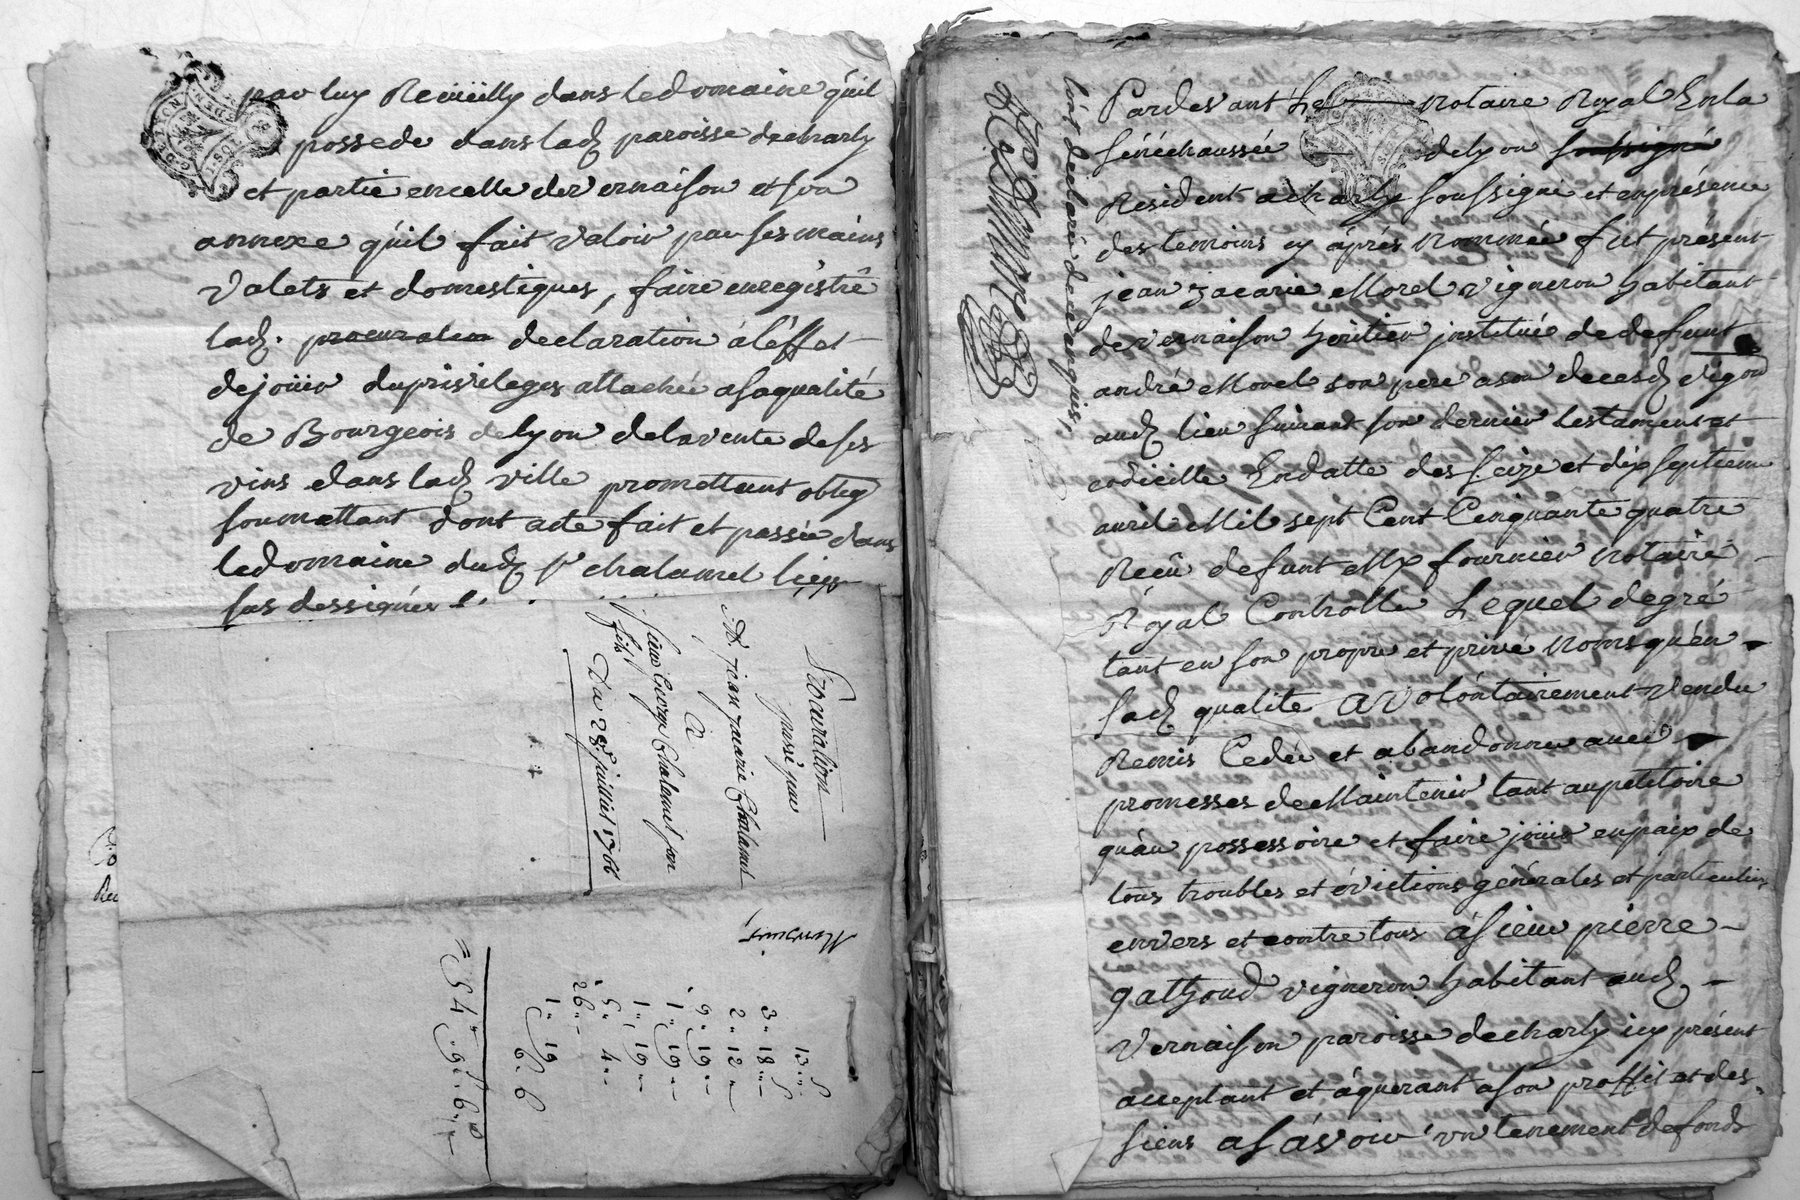 par luy Recüeilly dans ledomaine quil
possede dans lad. paroisse decharly
et partie encelle devernaison et son
annexe quil fait valoir par ses mains
valets et domestiques, faire enregistré
lad. procuration declaration á léffet
dejoüir duprivileges attachée asaqualité
de Bourgeois delyon delavente deses
vins dans lad. ville promettant oblig
soumettant dont acte fait et passée dans
ledomaine dud. Sr chalamel lieu
sus dessignée
Procuration
passé par
Sr jean jacarie Chalamel
A
sieur George Chalamel son
fils
Du 28e juillet 1766
Monsieur,
13
3 " 18 "
2 " 12 "
9 " 19 "
1 " 19 "
1 " 19 "
5 " 4 "
26 "
1 " 19
6. 6
= 54 " 9 " 6
Pardevant Le notaire Royal Enla
sénéchaussée delyon soussigné
Résident acharly soussigné et enprésence
des temoins cy áprés nommée fut présent
jean jacarie Morel vigneron habitant
devernaison héritier jnstitué de defunt
andré Morel son pere ason decesd. vigon
aud. lieu suivant son dernier testament et
codicille Endatte des seize et dix septieme
avril Mil sept Cent Cinquante quatre
Reçû defunt Me fournier Notaire
Royal Controllé Lequel degré
tant en son propre et privé noms quén
sad. qualite a volóntairement vendu
Remis Cedée et abandonné avec
promesses deMaintenir tant aupetitoire
quáu possessoire et faire joüir enpaix de
tous troubles et évictions générales et particuliers
envers et contre tous ásieur pierre
gathoud vigneron habitant aud.
vernaison paroisse decharly icy présent
acceptant et áquerant ason proffit et des
siens asávoir un tenement defonds